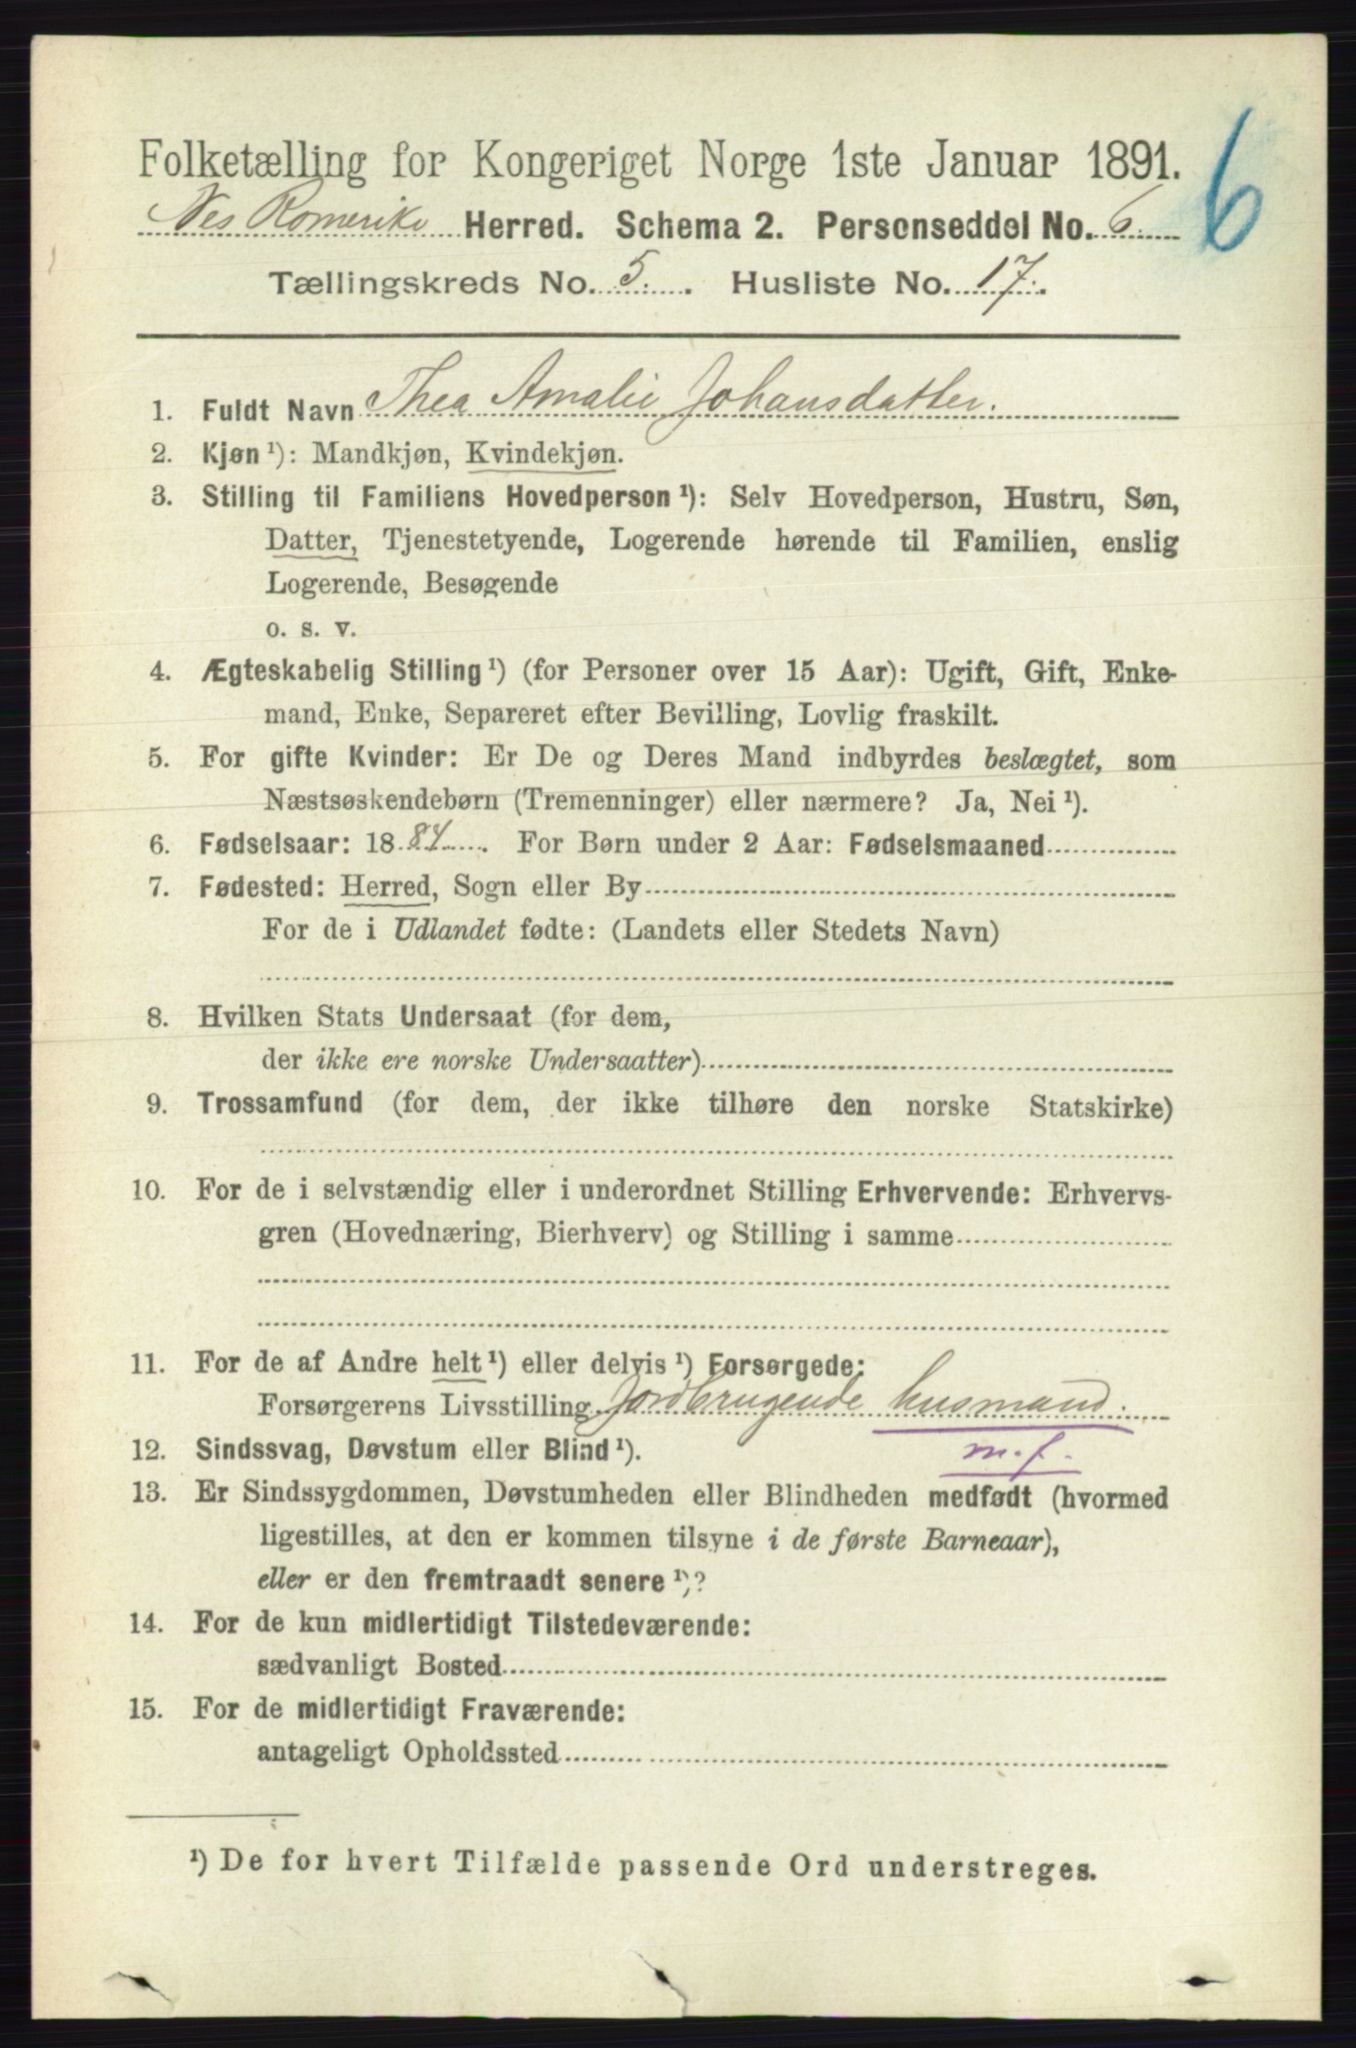 Folketælling for Kongeriget Norge 1ste Januar 1891.
6
Nes Romerike Herred. Schema 2. Personseddel No. 6
Tællingskreds No. 5. Husliste No. 17.
1. Fuldt Navn Thea Amalie Johansdatter.
2. Kjøn¹): Mandkjøn, Kvindekjøn.
3. Stilling til Familiens Hovedperson¹): Selv Hovedperson, Hustru, Søn,
Datter, Tjenestetyende, Logerende hørende til Familien, enslig
Logerende, Besøgende
o. s. v.
4. Ægteskabelig Stilling¹) (for Personer over 15 Aar): Ugift, Gift, Enke-
mand, Enke, Separeret efter Bevilling, Lovlig fraskilt.
5. For gifte Kvinder: Er De og Deres Mand indbyrdes beslægtet, som
Næstsøskendebørn (Tremenninger) eller nærmere? Ja, Nei¹).
6. Fødselsaar: 1884. For Børn under 2 Aar: Fødselsmaaned
7. Fødested: Herred, Sogn eller By
For de i Udlandet fødte: (Landets eller Stedets Navn)
8. Hvilken Stats Undersaat (for dem,
der ikke ere norske Undersaatter)
9. Trossamfund (for dem, der ikke tilhøre den norske Statskirke)
10. For de i selvstændig eller i underordnet Stilling Erhvervende: Erhvervs-
gren (Hovednæring, Bierhverv) og Stilling i samme
11. For de af Andre helt¹) eller delvis¹) Forsørgede:
Forsørgerens Livsstilling Jordbrugende husmand.
12. Sindssvag, Døvstum eller Blind¹). m. f.
13. Er Sindssygdommen, Døvstumheden eller Blindheden medfødt (hvormed
ligestilles, at den er kommen tilsyne i de første Barneaar),
eller er den fremtraadt senere¹)?
14. For de kun midlertidigt Tilstedeværende:
sædvanligt Bosted
15. For de midlertidigt Fraværende:
antageligt Opholdssted
¹) De for hvert Tilfælde passende Ord understreges.